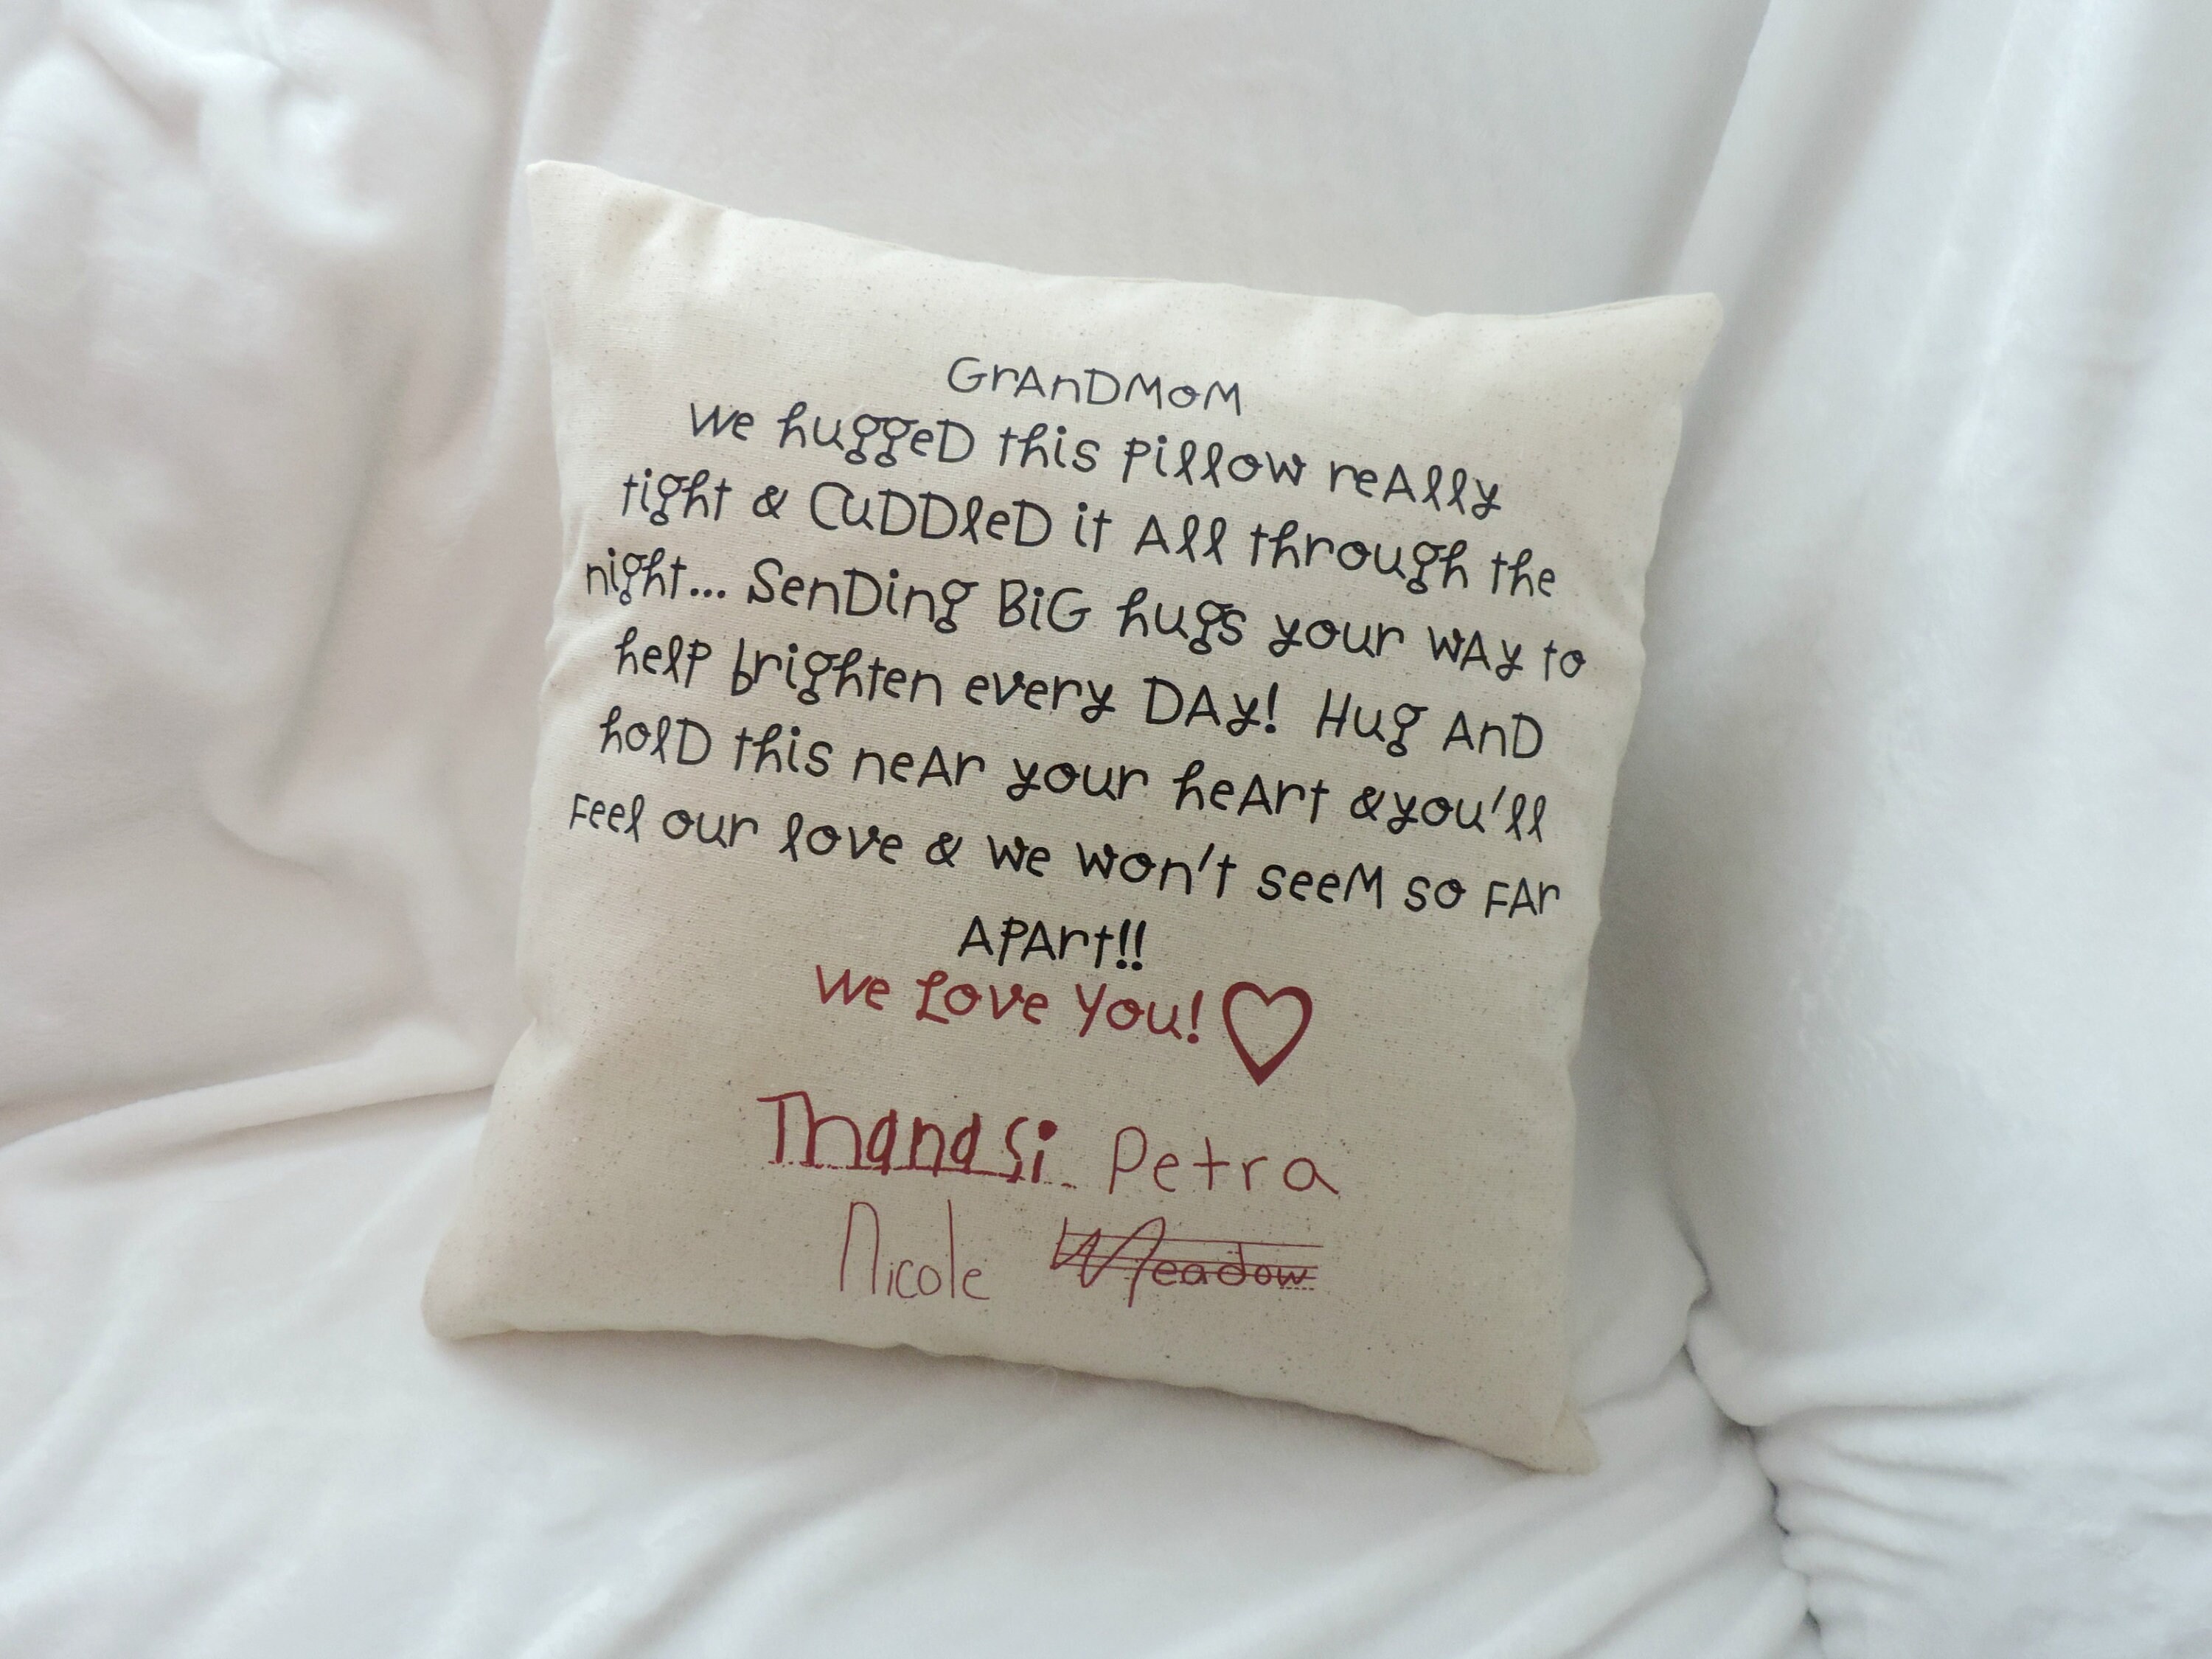 GrAnDMoM
We huggeD this Pillow reAlly
tight & CuDDleD it All through the
night... SenDing BiG hugs your wAy to
help brighten every DAy! Hug AnD
holD this neAr your heArt &you'll
Feel our love & we won't seeM so FAr
APArt!!
We Love You!
Thanasi Petra
Nicole Meadow